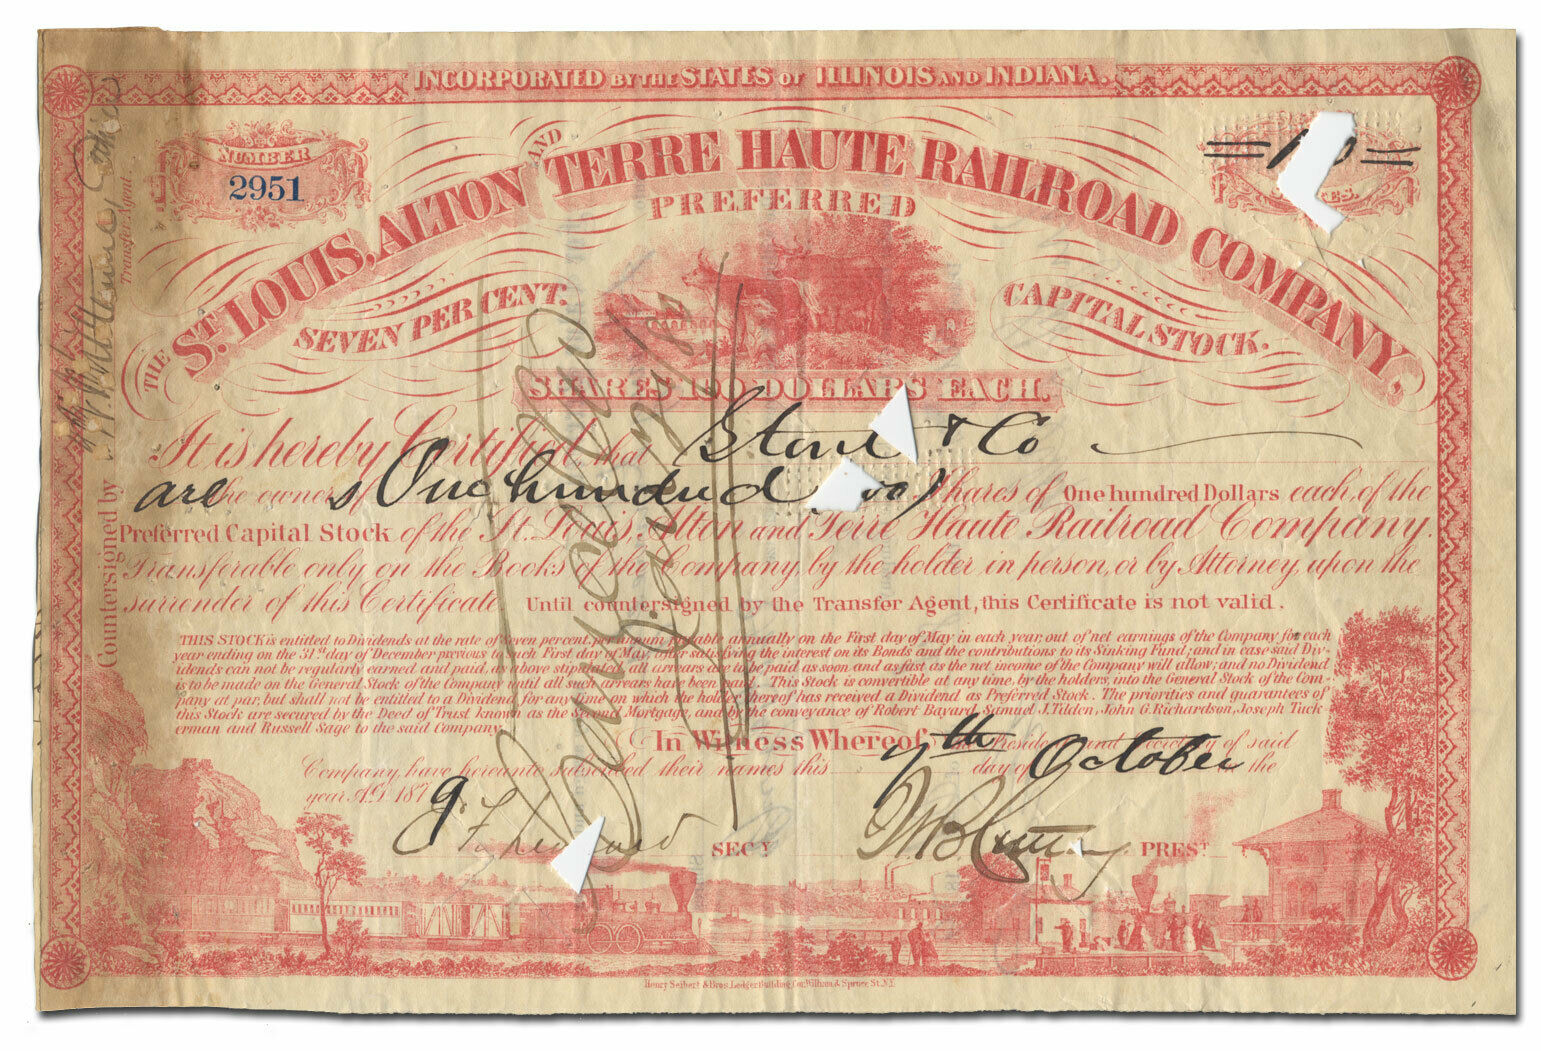 INCORPORATED BY THE STATES OF ILLINOIS AND INDIANA.
NUMBER
2951
THE ST. LOUIS, ALTON AND TERRE HAUTE RAILROAD COMPANY.
PREFERRED
SEVEN PER CENT. CAPITAL STOCK.
SHARES 100 DOLLARS EACH.
It is hereby Certified, that & Co
are the owners of One hundred (100) Shares of One hundred Dollars each, of the
Preferred Capital Stock of the St. Louis, Alton and Terre Haute Railroad Company.
Transferable only on the Books of the Company, by the holder in person, or by Attorney, upon the
surrender of this Certificate. Until countersigned by the Transfer Agent, this Certificate is not valid.
THIS STOCK is entitled to Dividends at the rate of Seven per cent, per annum payable annually on the First day of May in each year, out of net earnings of the Company for each
year ending on the 31st day of December previous to such First day of May, after paying the interest on its Bonds and the contributions to its Sinking Fund; and in case said Div-
idends can not be regularly earned and paid, as above stipulated, all arrears are to be paid as soon and as fast as the net income of the Company will allow; and no Dividend
is to be made on the General Stock of the Company until all such arrears have been paid. This Stock is convertible at any time, by the holders, into the General Stock of the Com-
pany at par, but shall not be entitled to a Dividend for any year on which the holder thereof has received a Dividend as Preferred Stock. The priorities and guarantees of
this Stock are secured by the Deed of Trust known as the Second Mortgage, and by the conveyance of Robert Bayard, Samuel J. Tilden, John G. Richardson, Joseph Tuck-
erman and Russell Sage to the said Company.
In Witness Whereof the President and Secretary of said
Company have hereunto subscribed their names this 7th day of October in the
year A.D. 1879
SECY PREST
Countersigned by
Transfer Agent.
Cancelled
Henry Seibert & Bros. Ledger Building, Cor. William & Spruce St. N.Y.